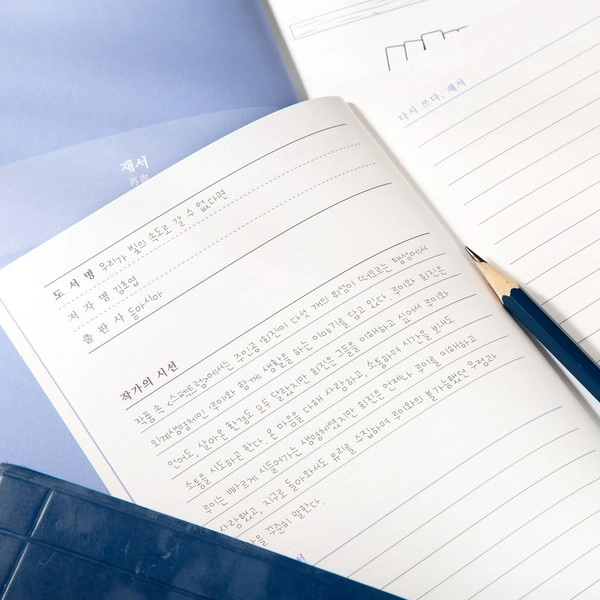 재서
再書
다시 쓰다, 재서
도 서 명 우리가 빛의 속도로 갈 수 없다면
저 자 명 김초엽
출 판 사 동아시아
작가의 시선
작품 속 <스펙트럼>에서는 주인공 '희진'이 다섯 개의 위성이 떠오르는 행성에서
외계생명체인 루이와 함께 생활을 하는 이야기를 담고 있다. 루이와 희진은
언어도, 살아온 환경도 모두 달랐지만 희진은 그들을 이해하고 싶어서 루이와
소통을 시도하곤 한다. 온 마음을 다해 사랑하고, 소통하며 시간을 보내도
루이는 빠르게 시들어가는 생명체였지만 희진은 언제나 루이를 이해하고
사랑했고, 지구로 돌아와서도 유리를 수집하며 루이와의 불가능했던 우정과
꾸준히 말한다.